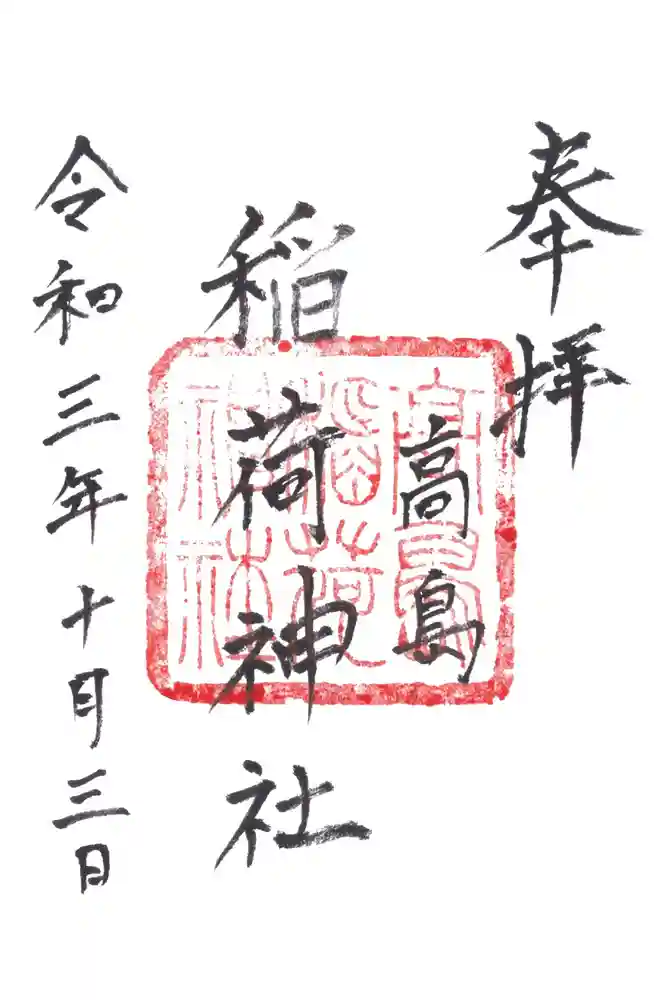 奉拝
高島
稲荷神社
令和三年十月三日
高島稲荷神社